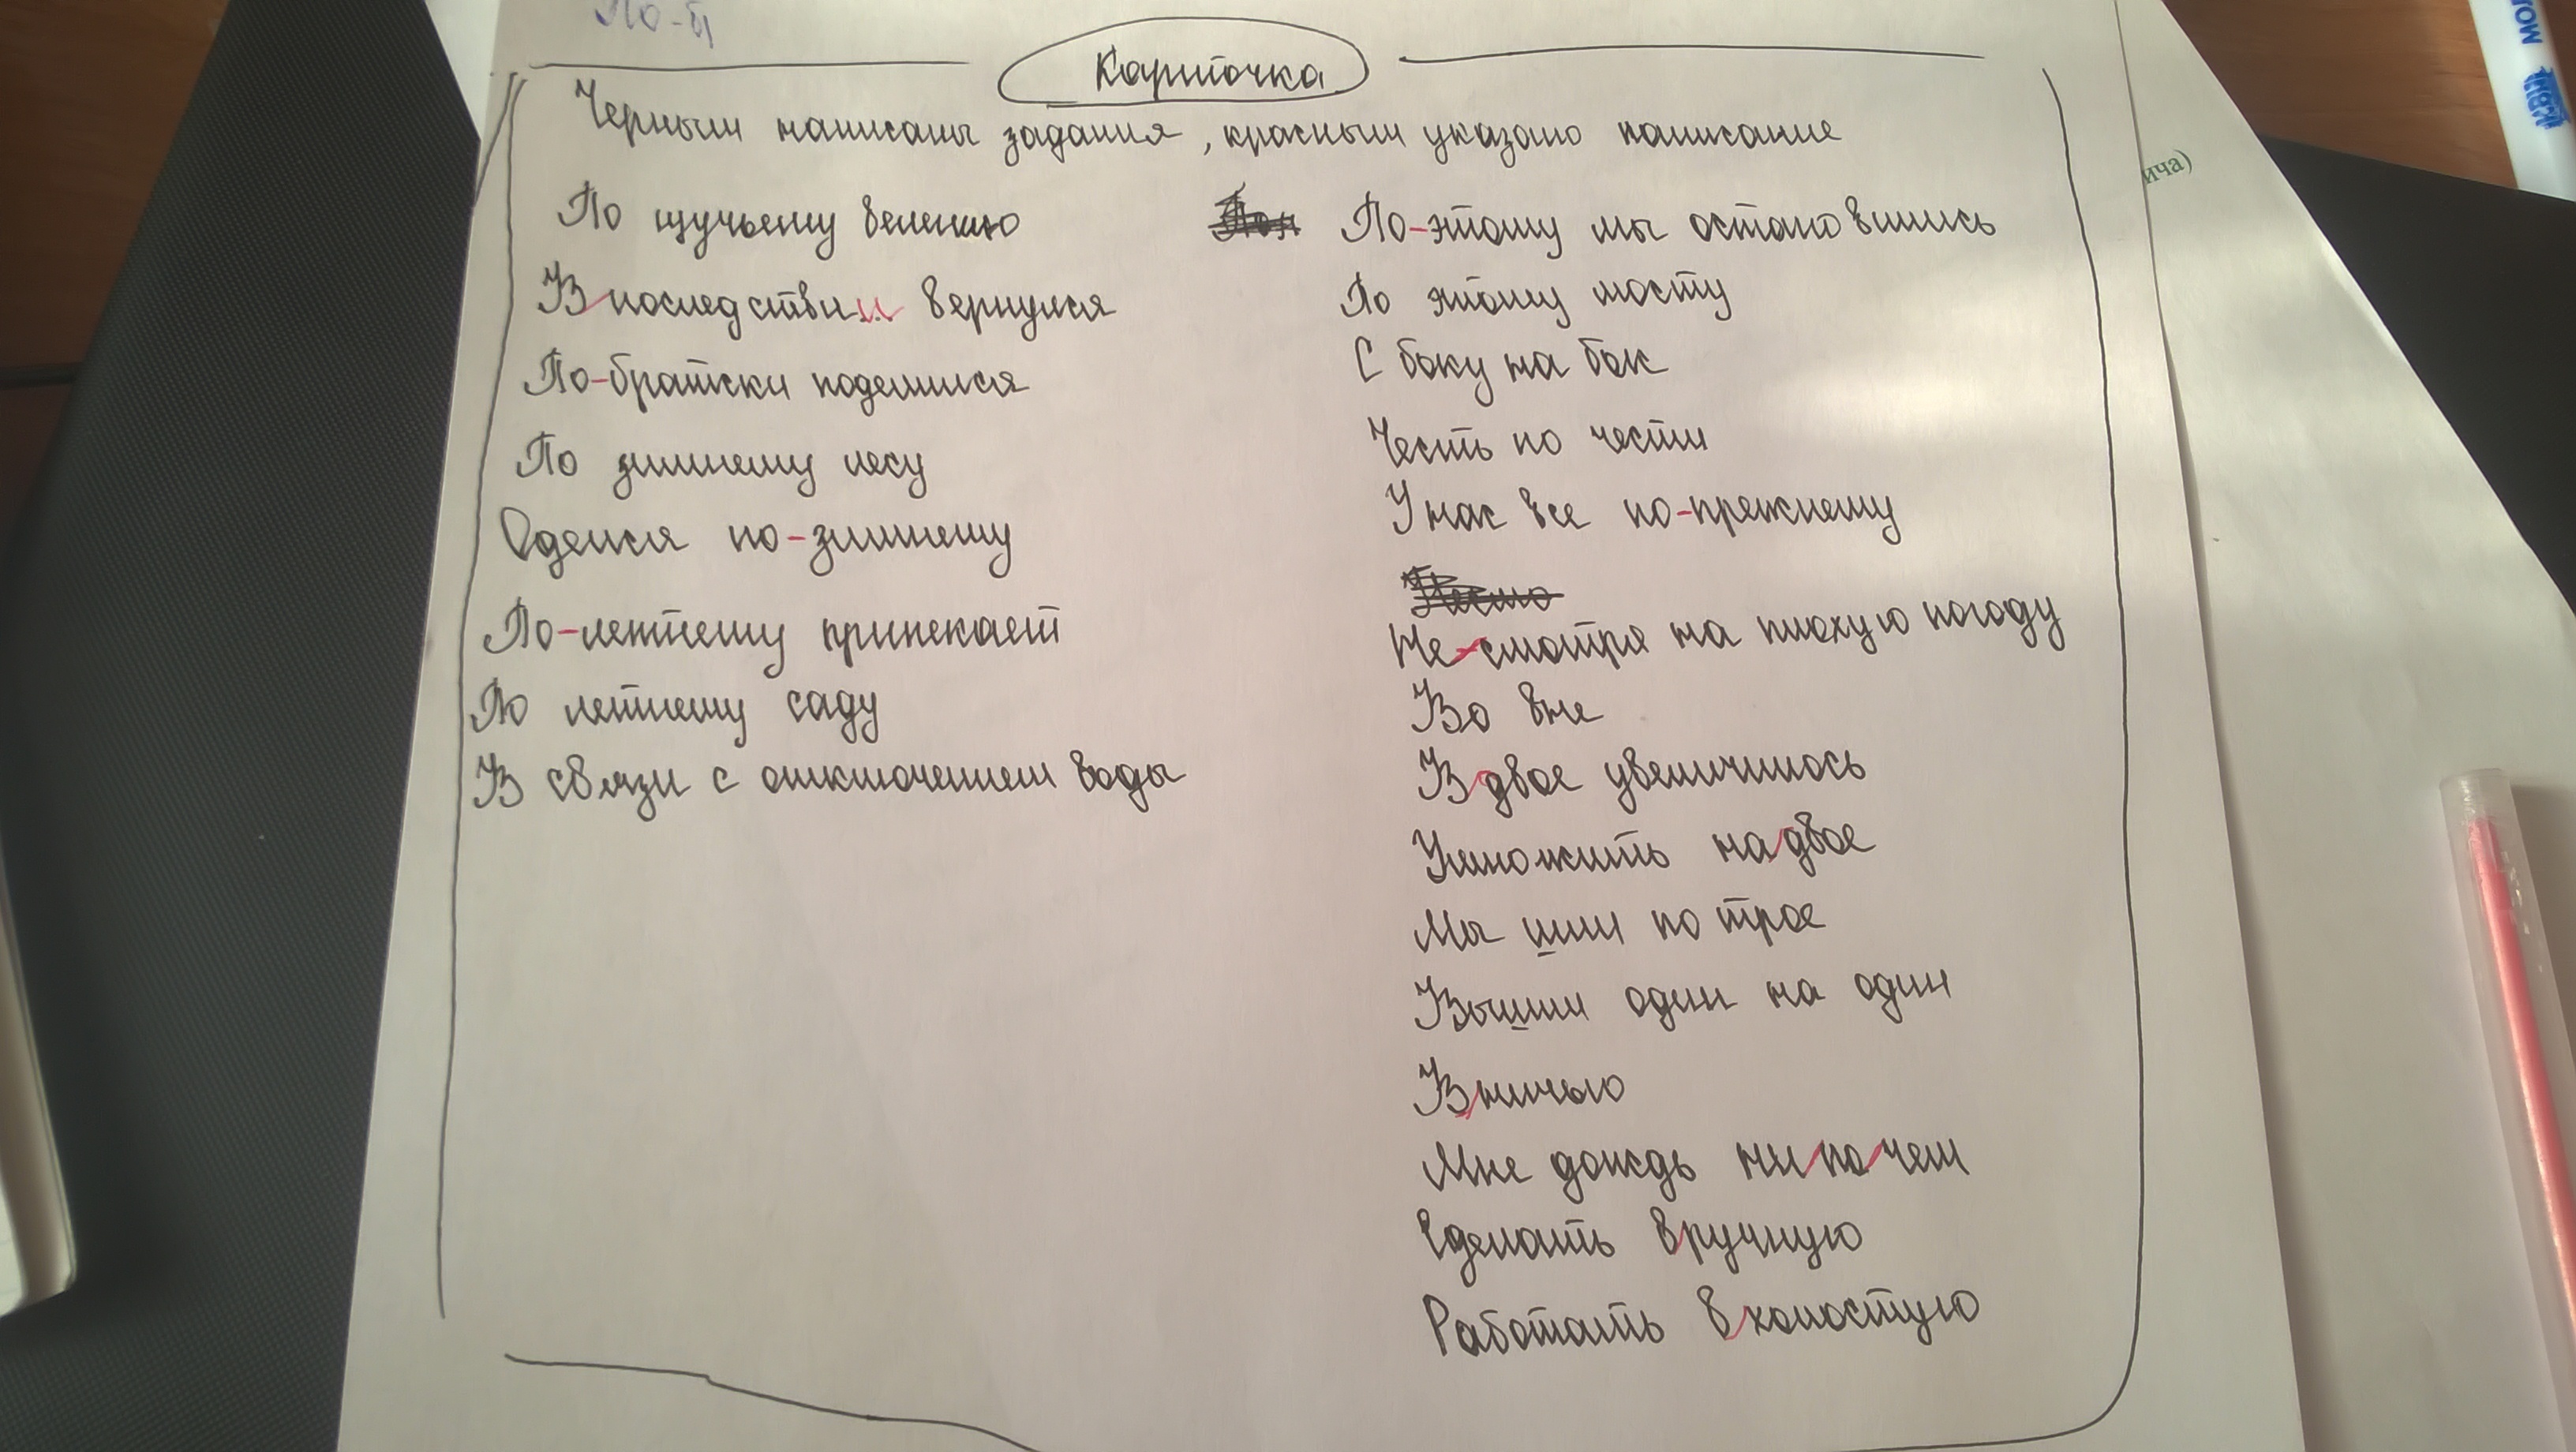 По-б
Карточка
Черным написаны задания, красным указано написание
По щучьему велению
Впоследствии вернулся
По-братски поделился
По зимнему лесу
Оделся по-зимнему
По-летнему припекает
По летнему саду
В связи с отключением воды
По-этому мы остановились
По этому мосту
С боку на бок
Честь по чести
У нас все по-прежнему
Не-смотря на плохую погоду
Во вне
Вдвое увеличилось
Умножить надвое
Мы шли по трое
Вышли один на один
Вничью
Мне дождь нипочем
Сделать вручную
Работать вхолостую
ича)